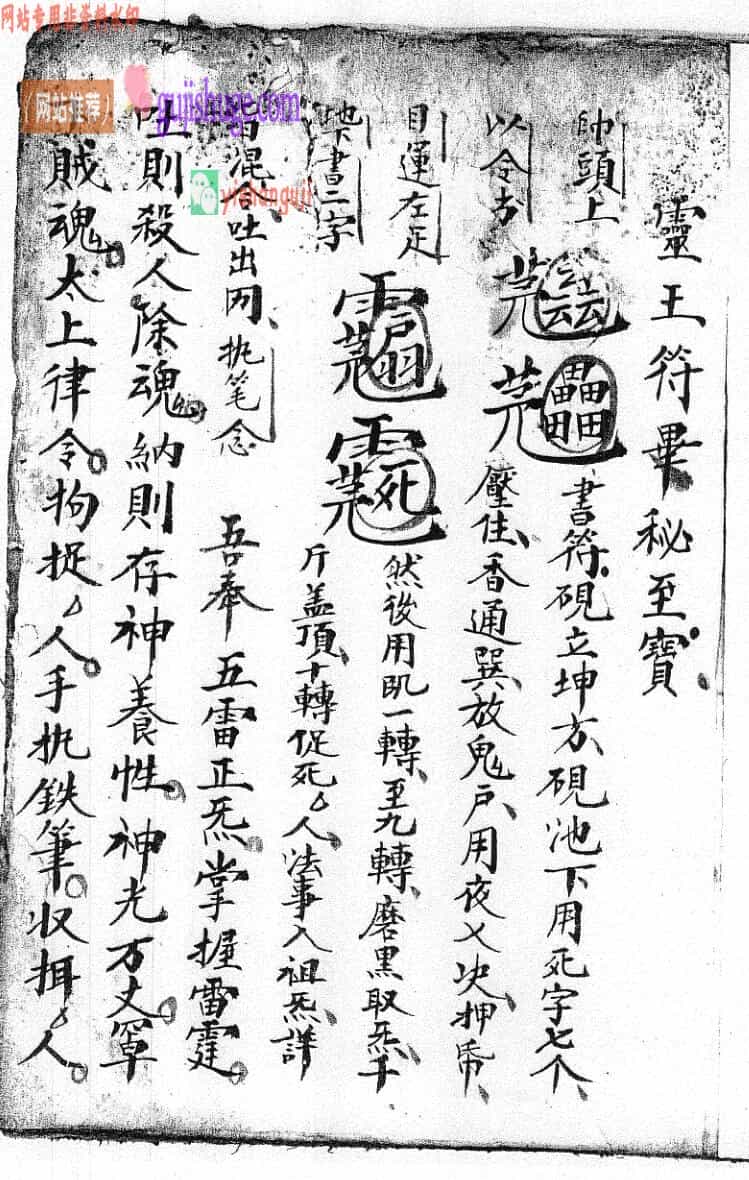 网站专用非资料水印
(网站推荐)
gujishuge.com
yishanguji
靈王符畢秘至寶
帥頭上
書符硯立坤方硯池下用死字七个
以令書
壓住香通巽放鬼戶用夜乂決押
目運左足
然後用 一轉至九轉磨黑取炁千
地書二字
斤盖頂十轉促死厶人法事入祖炁詳
混吐出罡执笔念
吾奉五雷正炁掌握雷霆
則殺人除魂納則存神養性神光万丈罩
賊魂太上律令拘捉厶人手执鉄筆收 厶人